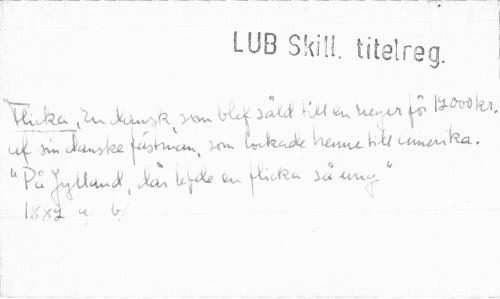 LUB Skill. titelreg.
Flicka, En dansk, som blef såld till en neger för 12000 kr.
af sin danske fästman, som lockade henne till Amerika.
"På Jylland, där lefde en flicka så ung"
1882 a, b)